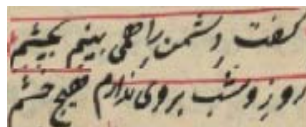 گفت دشمن را همی بینم بچشم
روز و شب بر وی ندارم هیچ خشم